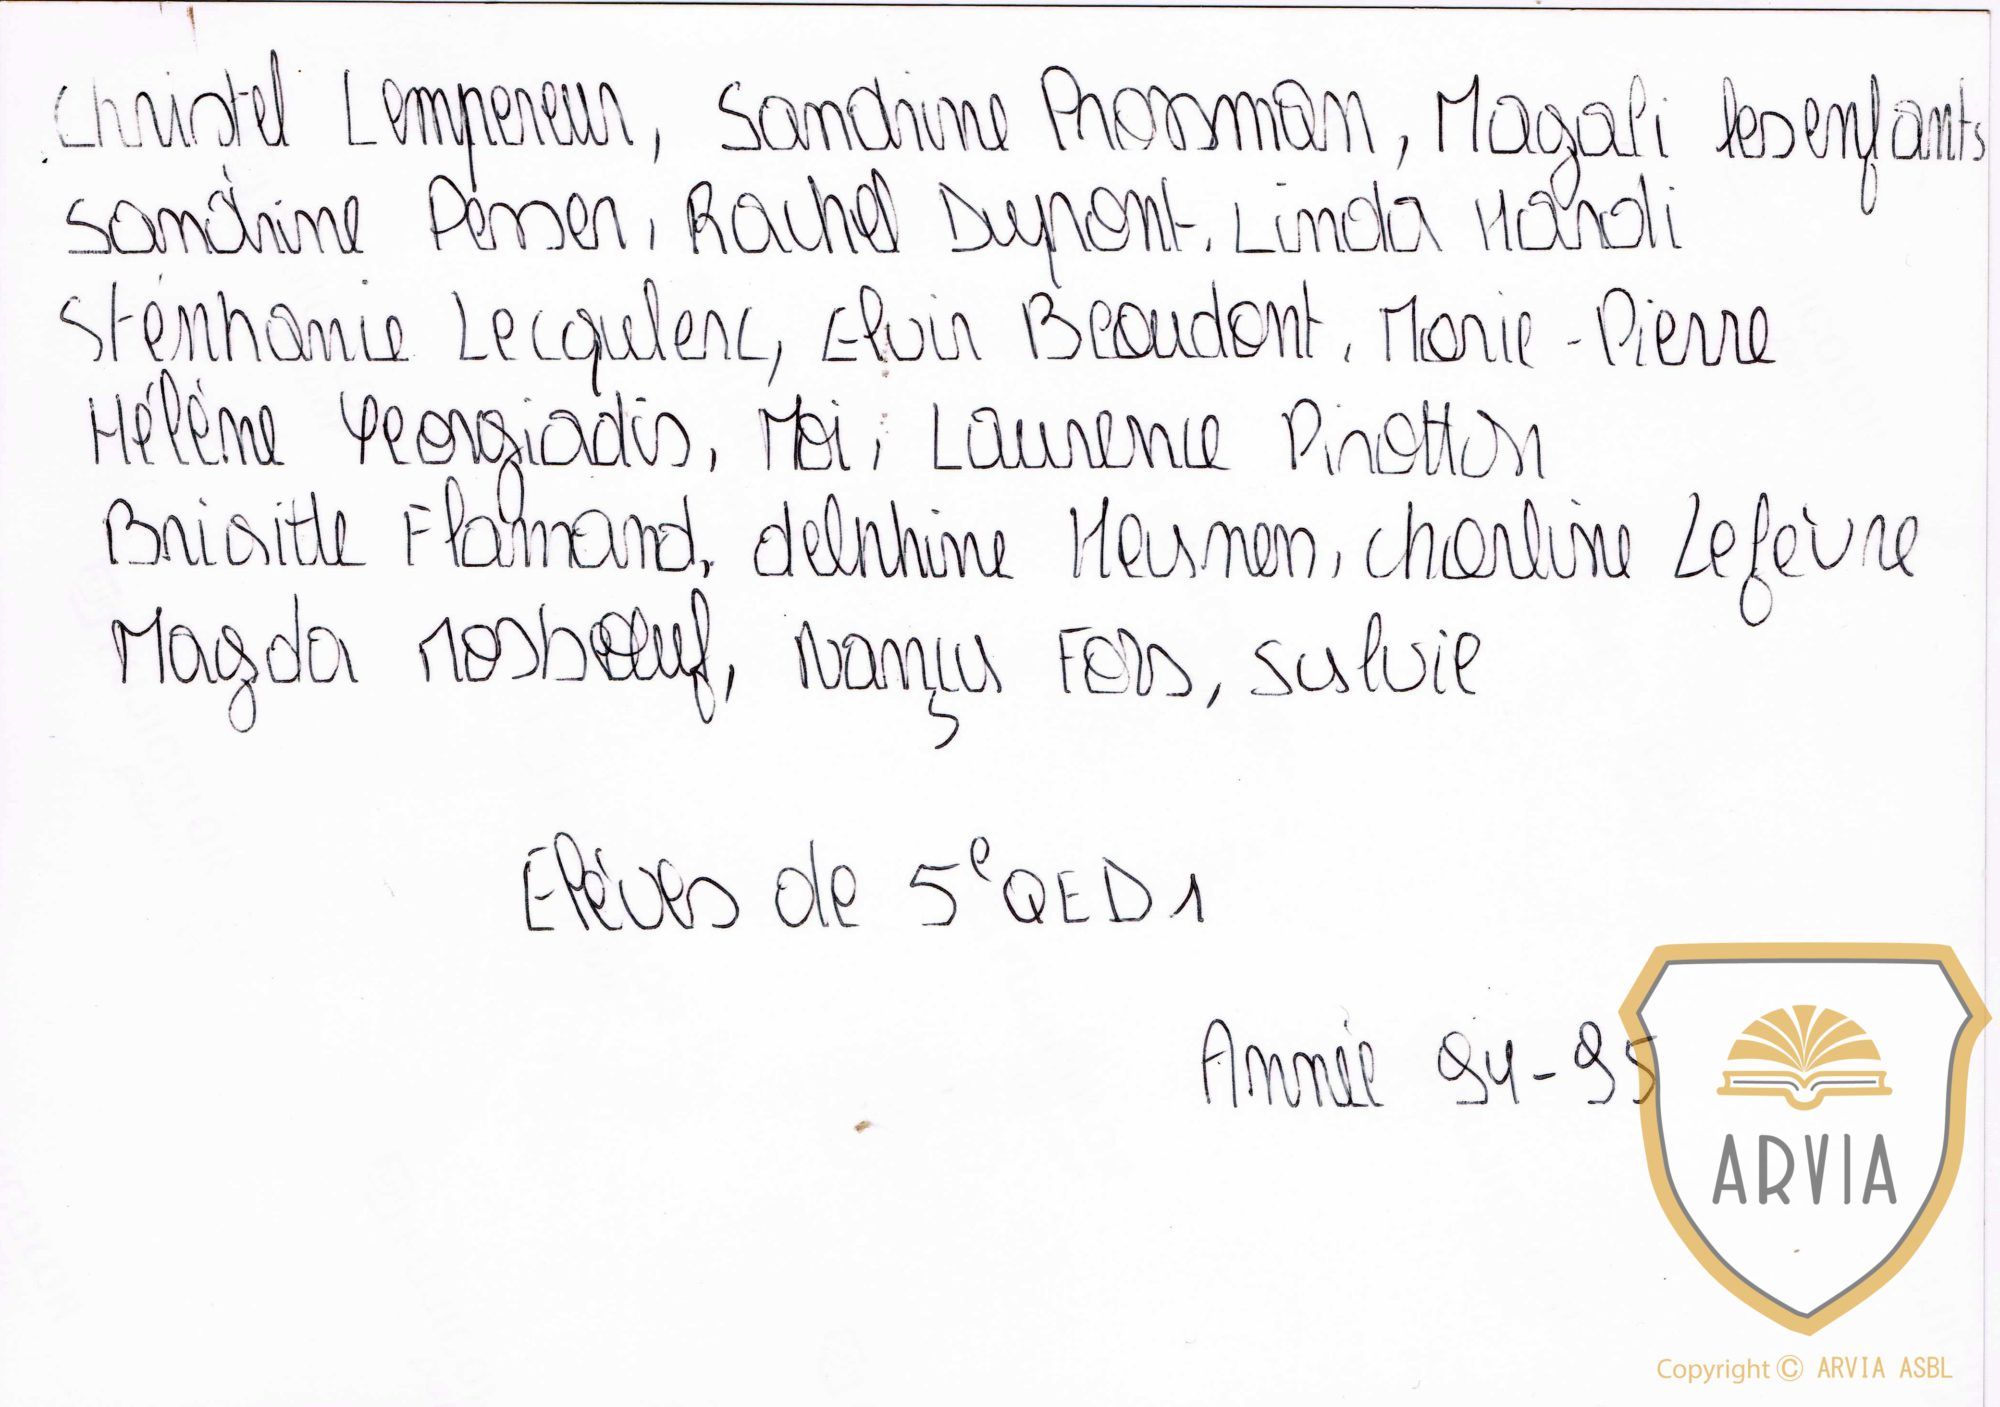 Christel Lempereur, Sandrine Prossman, Magali Desenfants
Sandrine Pesser, Rachel Dupont, Linda Haroli
Stéphanie Lecqulerc, Elvir Beaudont, Marie-Pierre
Hélène Georgiadis, Moi, Laurence Pirotton
Brigitte Flamand, delphine Heusnen, charline Lefèvre
Magda Mosbœuf, Nançy Fors, Sylvie
Elèves de 5e QED1
Année 94-95
ARVIA
Copyright © ARVIA ASBL